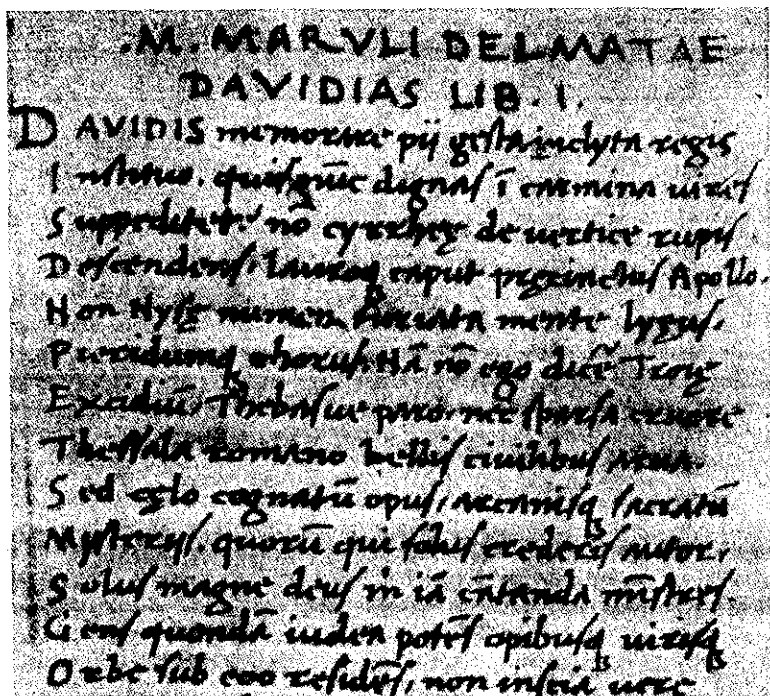 .M. MARVLI DELMATAE
DAVIDIAS LIB. I.
DAVIDIS memorare pij gesta inclyta regis
Instituo. quisnūc dignas ī carmina uires
Suppeditet? nō cyrrhę de uertice rupis
Descendens, lauroq caput pręcinctus Apollo.
Non Nysę numen, mente lyęus.
Pieridumq chorus. Nā nō ego dicē Troię
Excidiū, Thebasue paro. nec sparsa cruore
Thessala romano bellis ciuilibus arua.
Sed cęlo cognatū opus, arcanisq sacratū
Mysterijs. quorū qui solus crederis autor,
Solus magne deus m̄ iā cātanda mīstres.
Gens quondā iudea potēs opibusq uirisq
Orbe sub eoo residēs, non inscia uere